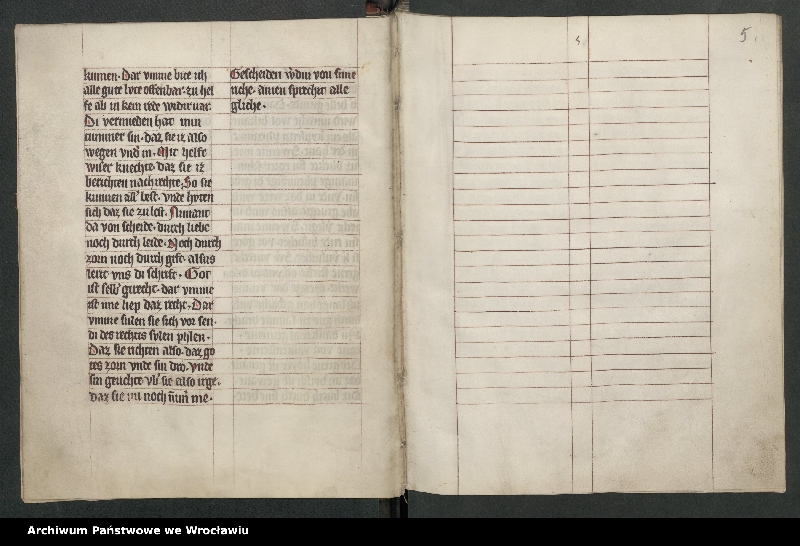 kunnen. Dar vmme bite ich
alle gute lvte offenbar. zu hel
fe ab in kein rede widirvar.
Di vermieden hat min
tummer sin. daz sie iz also
wegen vnd in. Mit helfe
wiser knechte. daz sie iz
berichten nach rechte. So sie
kunnen allir best. vnde hvten
sich daz sie zu lest. Nimant
da von scheide. durch liebe
noch durch leide. Noch durch
zorn noch durch gift. alsus
leret vns di schrift. Got
ist selbe gerecht. dar vmme
ist ime liep daz recht. Dar
vmme sulen sie sich vor sen.
di des rechtes sulen phlen.
Daz sie richten also. daz go
tes zorn vnde sin dro. vnde
sin gerichte vbir sie also irge.
daz sie vu noch me.
Gescheiden von sime
riche. amen sprechet alle
gliche.
5
5.
Archiwum Państwowe we Wrocławiu